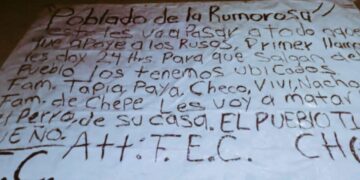 "Poblado de la Rumorosa"
Esto les va a Pasar a todo aque
que apoye a los Rusos, Primer llama
les doy 24 Hrs Para que salgan de
Pueblo los tenemos ubicados.
Fam. Tapia, Paya, Checo, Vivi, Nacho
Fam. de Chepe Les voy a matar
el Perro, de su casa. EL PUEBLO TU
ENO. Att: F.E.C. CH
.C.